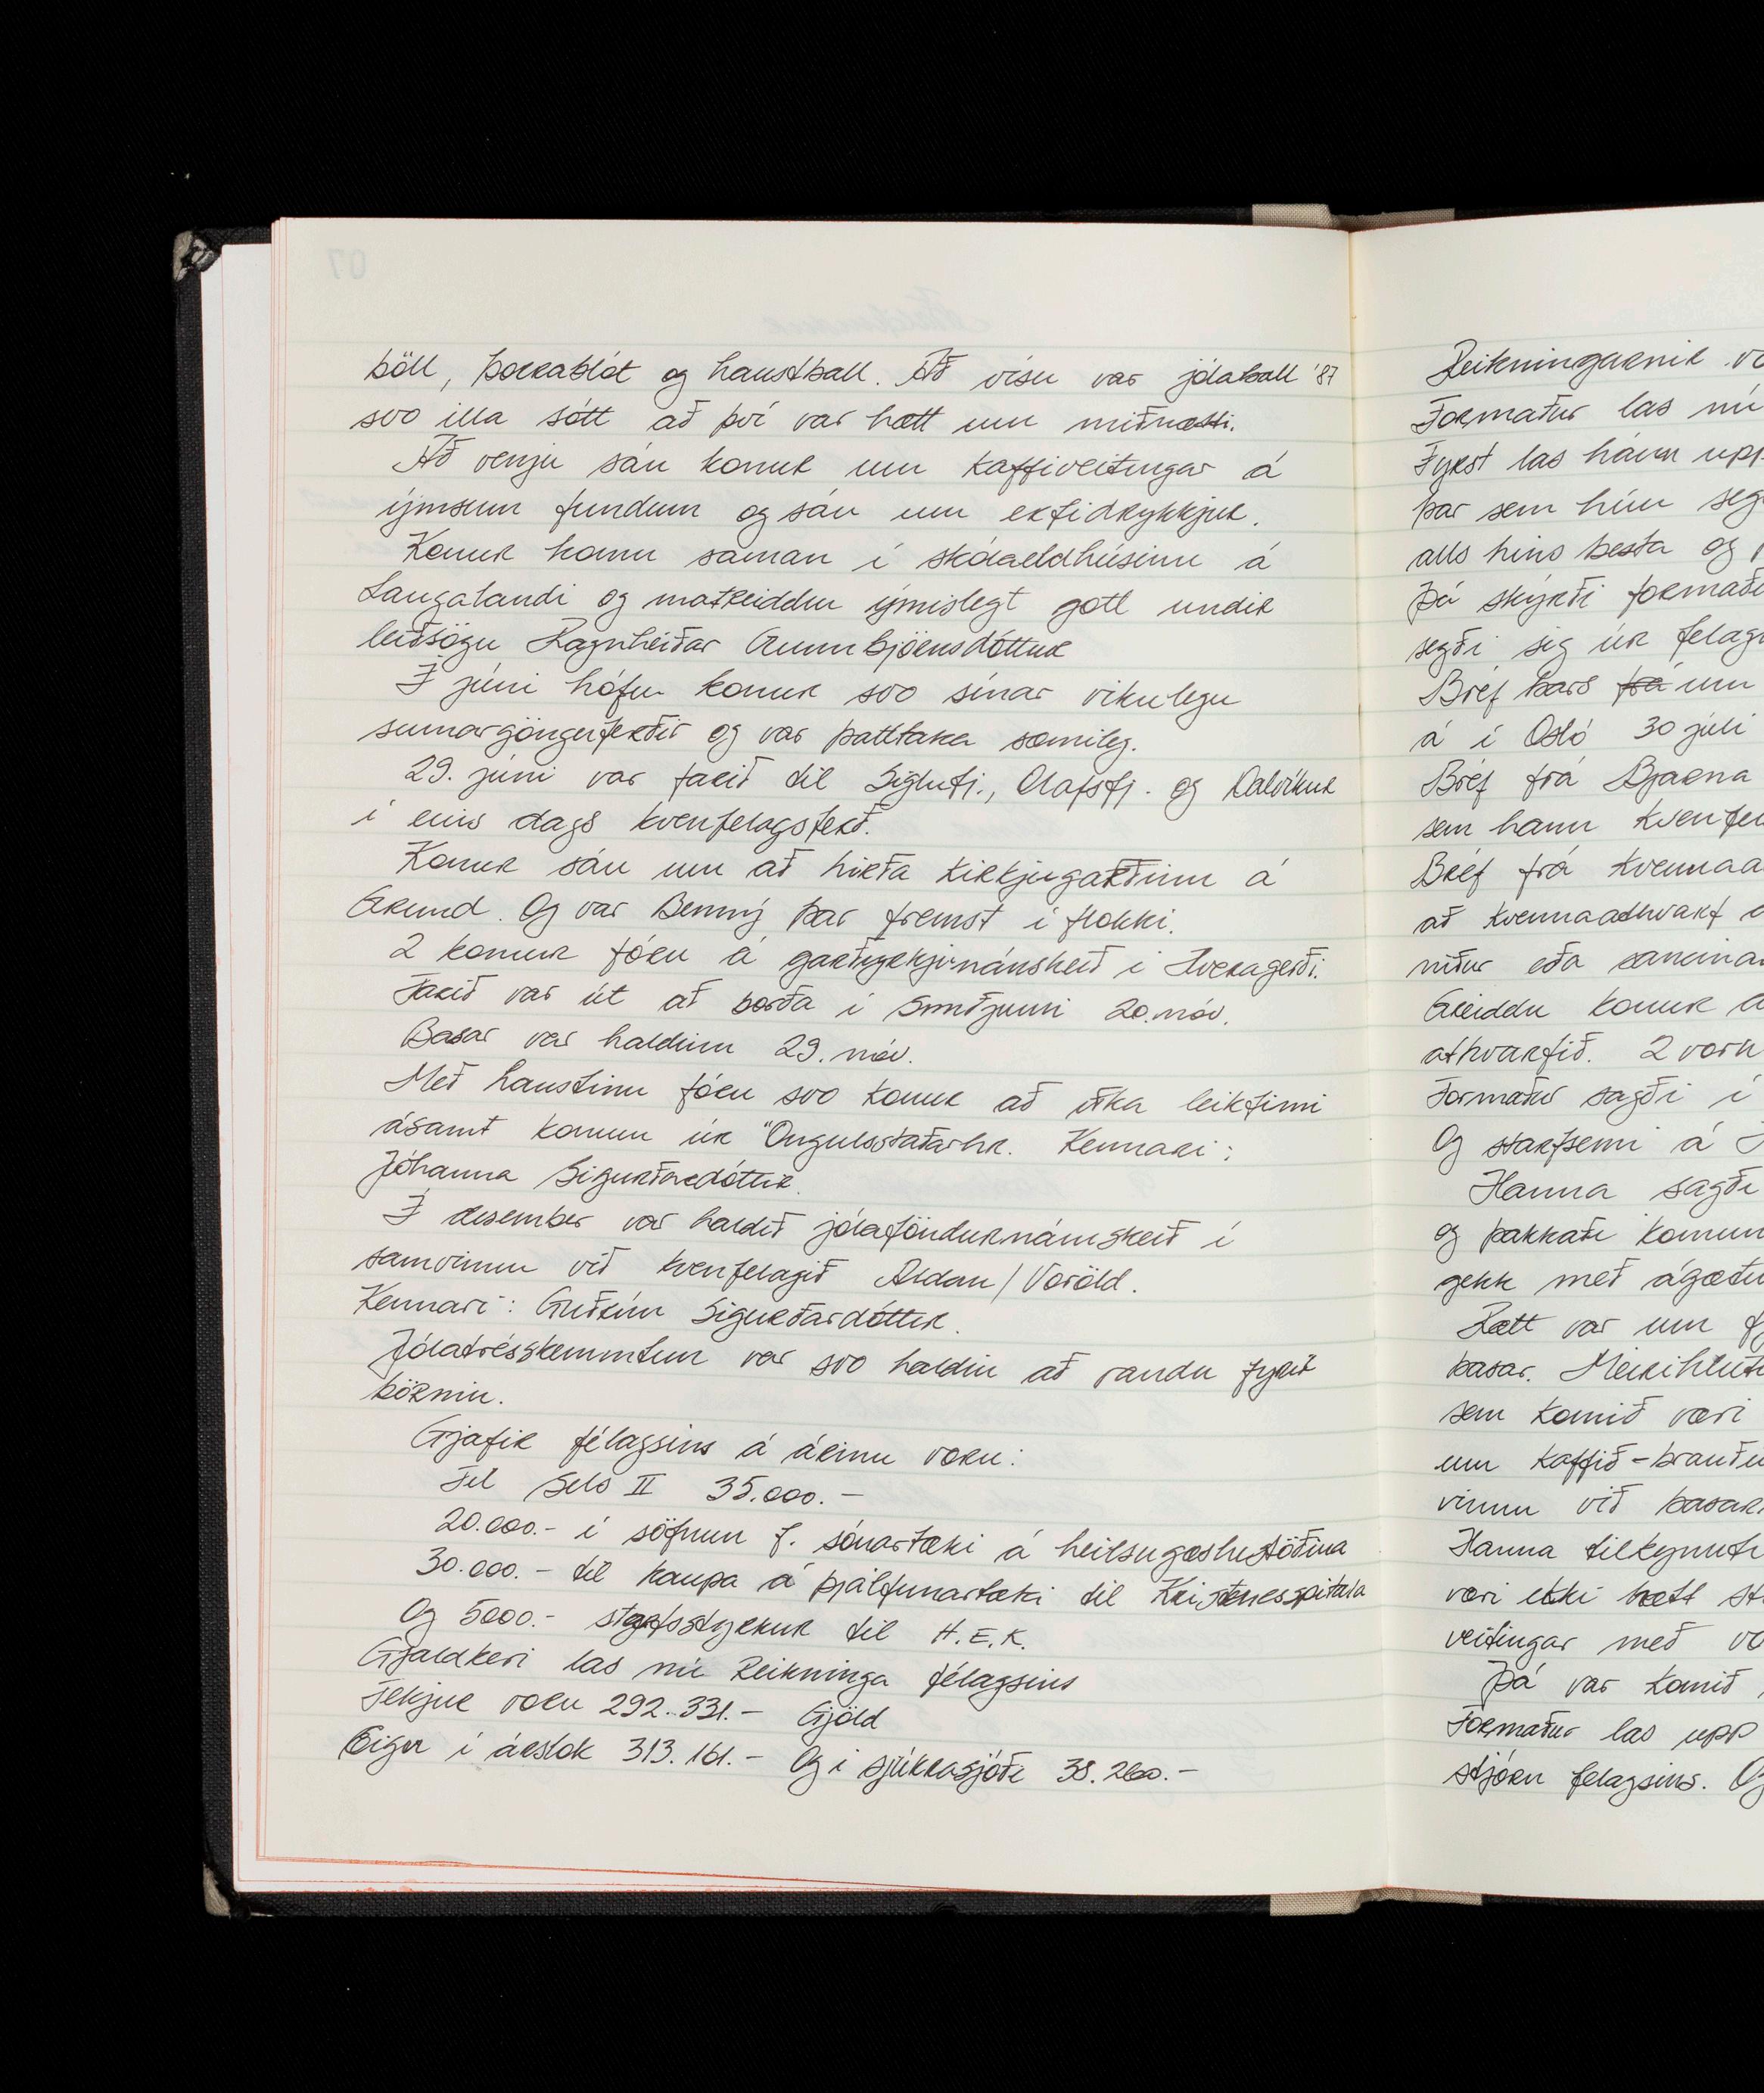 böll, þorrablót og haustball. Að vísu var jólaball '87
svo illa sótt að því var hætt um miðnætti.
Að venju sáu konur um kaffiveitingar á
ýmsum fundum og sáu um erfidrykkjur.
Konur komu saman í skólaeldhúsinu á
Laugalandi og matreiddu ýmislegt gott undir
leiðsögu Ragnheiðar Gunnbjörnsdóttur
Í júní hófu konur svo sínar vikulegu
sumargönguferðir og var þátttaka sæmileg.
29. júní var farið til Siglufj., Ólafsfj. og Dalvíkur
í eins dags kvenfelagsferð.
Konur sáu um að hirða kirkjugarðinn á
Grund. Og var Benný þar fremst í flokki.
2 konur fóru á garðyrkjunámskeið í Hveragerði.
Farið var út að borða í Smiðjunni 20. nóv.
Basar var haldinn 29. nóv.
Með haustinu fóru svo konur að iðka leikfimi
ásamt konum úr Öngulsstaðarhr. Kennari:
Jóhanna Sigurðardóttir.
Í desember var haldið jólaföndurnámskeið í
samvinnu við kvenfelagið Aldan/Voröld.
Kennari: Guðrún Sigurðardóttir.
Jólatrésskemmtun var svo haldin að vanda fyrir
börnin.
Gjafir félagsins á árinu voru:
Til Sels II 35.000.-
20.000.- í söfnun f. sónartæki á heilsugæslustöðina
30.000.- til kaupa á þjálfunartæki til Kristnesspítala
Og 5000.- starfsstyrkur til H.E.K.
Gjaldkeri las nú Reikninga félagsins
Tekjur voru 292.331.- Gjöld
Eigur í árslok 313.161.- Og í sjúkrasjóði 38.260.-
Reikningarnir
Formaður las nú
Fyrst las hún upp
þar sem hún
alls hins besta og
Þá skýrði
segði sig úr
Bréf barS frá um
á í Osló 30 júlí
Bréf frá Bjarna
sem hann
Bréf frá
að kvennaathvarf
niður eða
Greiddu konur
athvarfið. 2 voru
Formaður sagði í
Og starfsemi á
Hanna sagði
og þakkaði
gekk með
Rætt var um
basar.
sem komið væri
um kaffið -
vinnu við
Hanna
væri ekki hætt
veitingar með
Þá var komið
Formaður las upp
stjórn felagsins. Og